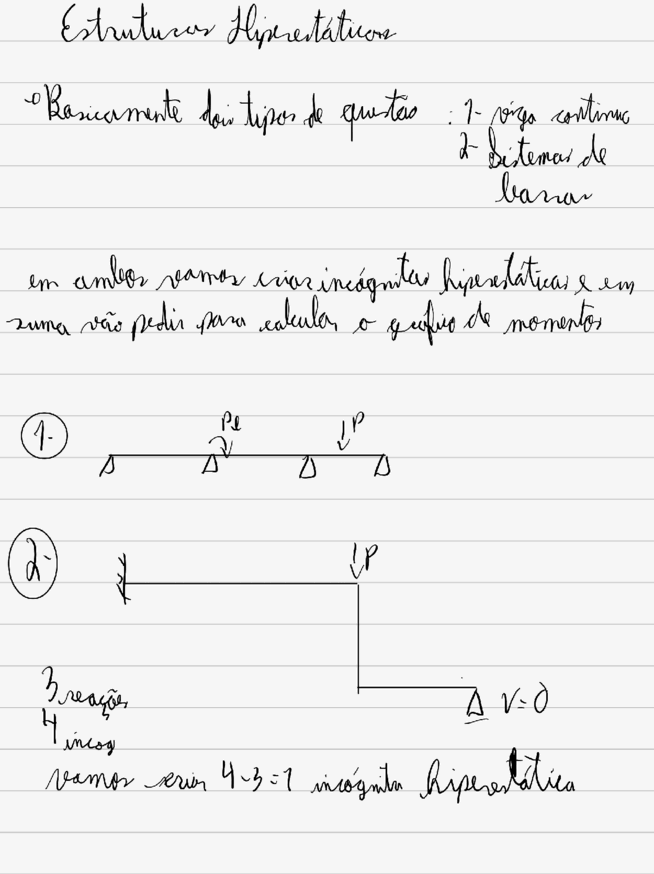 Estruturas Hiperestáticas
Basicamente dois tipos de questão : 1- viga continua
2- Sistemas de
barras
em ambos vamos criar incógnitas hiperestáticas e em
suma vão pedir para calcular o gráfico de momentos
1-
Pl
P
2-
P
V=0
3 reações
4 incog
vamos criar 4-3=1 incógnita hiperestática